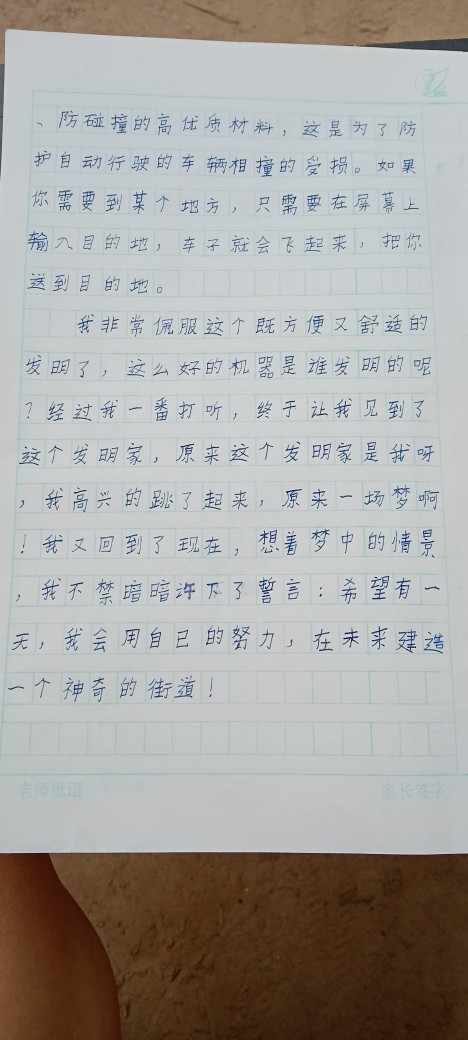 、防碰撞的高优质材料，这是为了防
护自动行驶的车辆相撞的受损。如果
你需要到某个地方，只需要在屏幕上
输入目的地，车子就会飞起来，把你
送到目的地。
我非常佩服这个既方便又舒适的
发明了，这么好的机器是谁发明的呢
？经过我一番打听，终于让我见到了
这个发明家，原来这个发明家是我呀
，我高兴的跳了起来，原来一场梦啊
！我又回到了现在，想着梦中的情景
，我不禁暗暗许下了誓言：希望有一
天，我会用自己的努力，在未来建造
一个神奇的街道！
老师批语：
家长签字：